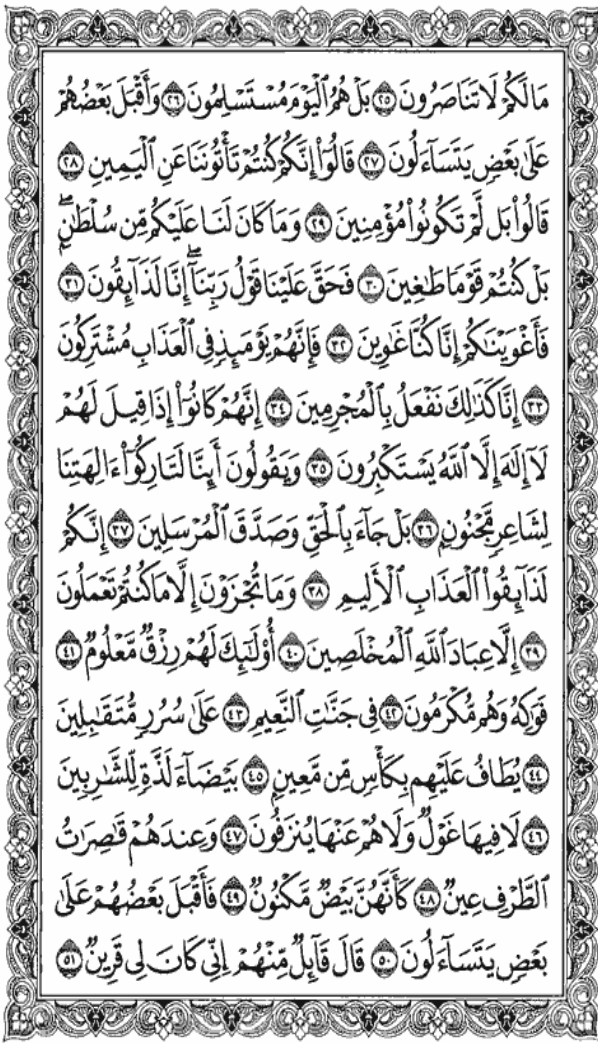 مَا لَكُمْ لَا تَنَاصَرُونَ ﴿٢٥﴾ بَلْ هُمُ ٱلْيَوْمَ مُسْتَسْلِمُونَ ﴿٢٦﴾ وَأَقْبَلَ بَعْضُهُمْ
عَلَىٰ بَعْضٍ يَتَسَآءَلُونَ ﴿٢٧﴾ قَالُوٓا۟ إِنَّكُمْ كُنتُمْ تَأْتُونَنَا عَنِ ٱلْيَمِينِ ﴿٢٨﴾
قَالُوا۟ بَل لَّمْ تَكُونُوا۟ مُؤْمِنِينَ ﴿٢٩﴾ وَمَا كَانَ لَنَا عَلَيْكُم مِّن سُلْطَٰنٍۭ ۖ
بَلْ كُنتُمْ قَوْمًا طَٰغِينَ ﴿٣٠﴾ فَحَقَّ عَلَيْنَا قَوْلُ رَبِّنَآ ۖ إِنَّا لَذَآئِقُونَ ﴿٣١﴾
فَأَغْوَيْنَٰكُمْ إِنَّا كُنَّا غَٰوِينَ ﴿٣٢﴾ فَإِنَّهُمْ يَوْمَئِذٍ فِى ٱلْعَذَابِ مُشْتَرِكُونَ
﴿٣٣﴾ إِنَّا كَذَٰلِكَ نَفْعَلُ بِٱلْمُجْرِمِينَ ﴿٣٤﴾ إِنَّهُمْ كَانُوٓا۟ إِذَا قِيلَ لَهُمْ
لَآ إِلَٰهَ إِلَّا ٱللَّهُ يَسْتَكْبِرُونَ ﴿٣٥﴾ وَيَقُولُونَ أَئِنَّا لَتَارِكُوٓا۟ ءَالِهَتِنَا
لِشَاعِرٍ مَّجْنُونٍۭ ﴿٣٦﴾ بَلْ جَآءَ بِٱلْحَقِّ وَصَدَّقَ ٱلْمُرْسَلِينَ ﴿٣٧﴾ إِنَّكُمْ
لَذَآئِقُوا۟ ٱلْعَذَابِ ٱلْأَلِيمِ ﴿٣٨﴾ وَمَا تُجْزَوْنَ إِلَّا مَا كُنتُمْ تَعْمَلُونَ
﴿٣٩﴾ إِلَّا عِبَادَ ٱللَّهِ ٱلْمُخْلَصِينَ ﴿٤٠﴾ أُو۟لَٰٓئِكَ لَهُمْ رِزْقٌ مَّعْلُومٌ ﴿٤١﴾
فَوَٰكِهُ وَهُم مُّكْرَمُونَ ﴿٤٢﴾ فِى جَنَّٰتِ ٱلنَّعِيمِ ﴿٤٣﴾ عَلَىٰ سُرُرٍ مُّتَقَٰبِلِينَ
﴿٤٤﴾ يُطَافُ عَلَيْهِم بِكَأْسٍ مِّن مَّعِينٍۭ ﴿٤٥﴾ بَيْضَآءَ لَذَّةٍ لِّلشَّٰرِبِينَ
﴿٤٦﴾ لَا فِيهَا غَوْلٌ وَلَا هُمْ عَنْهَا يُنزَفُونَ ﴿٤٧﴾ وَعِندَهُمْ قَٰصِرَٰتُ
ٱلطَّرْفِ عِينٌ ﴿٤٨﴾ كَأَنَّهُنَّ بَيْضٌ مَّكْنُونٌ ﴿٤٩﴾ فَأَقْبَلَ بَعْضُهُمْ عَلَىٰ
بَعْضٍ يَتَسَآءَلُونَ ﴿٥٠﴾ قَالَ قَآئِلٌ مِّنْهُمْ إِنِّى كَانَ لِى قَرِينٌ ﴿٥١﴾